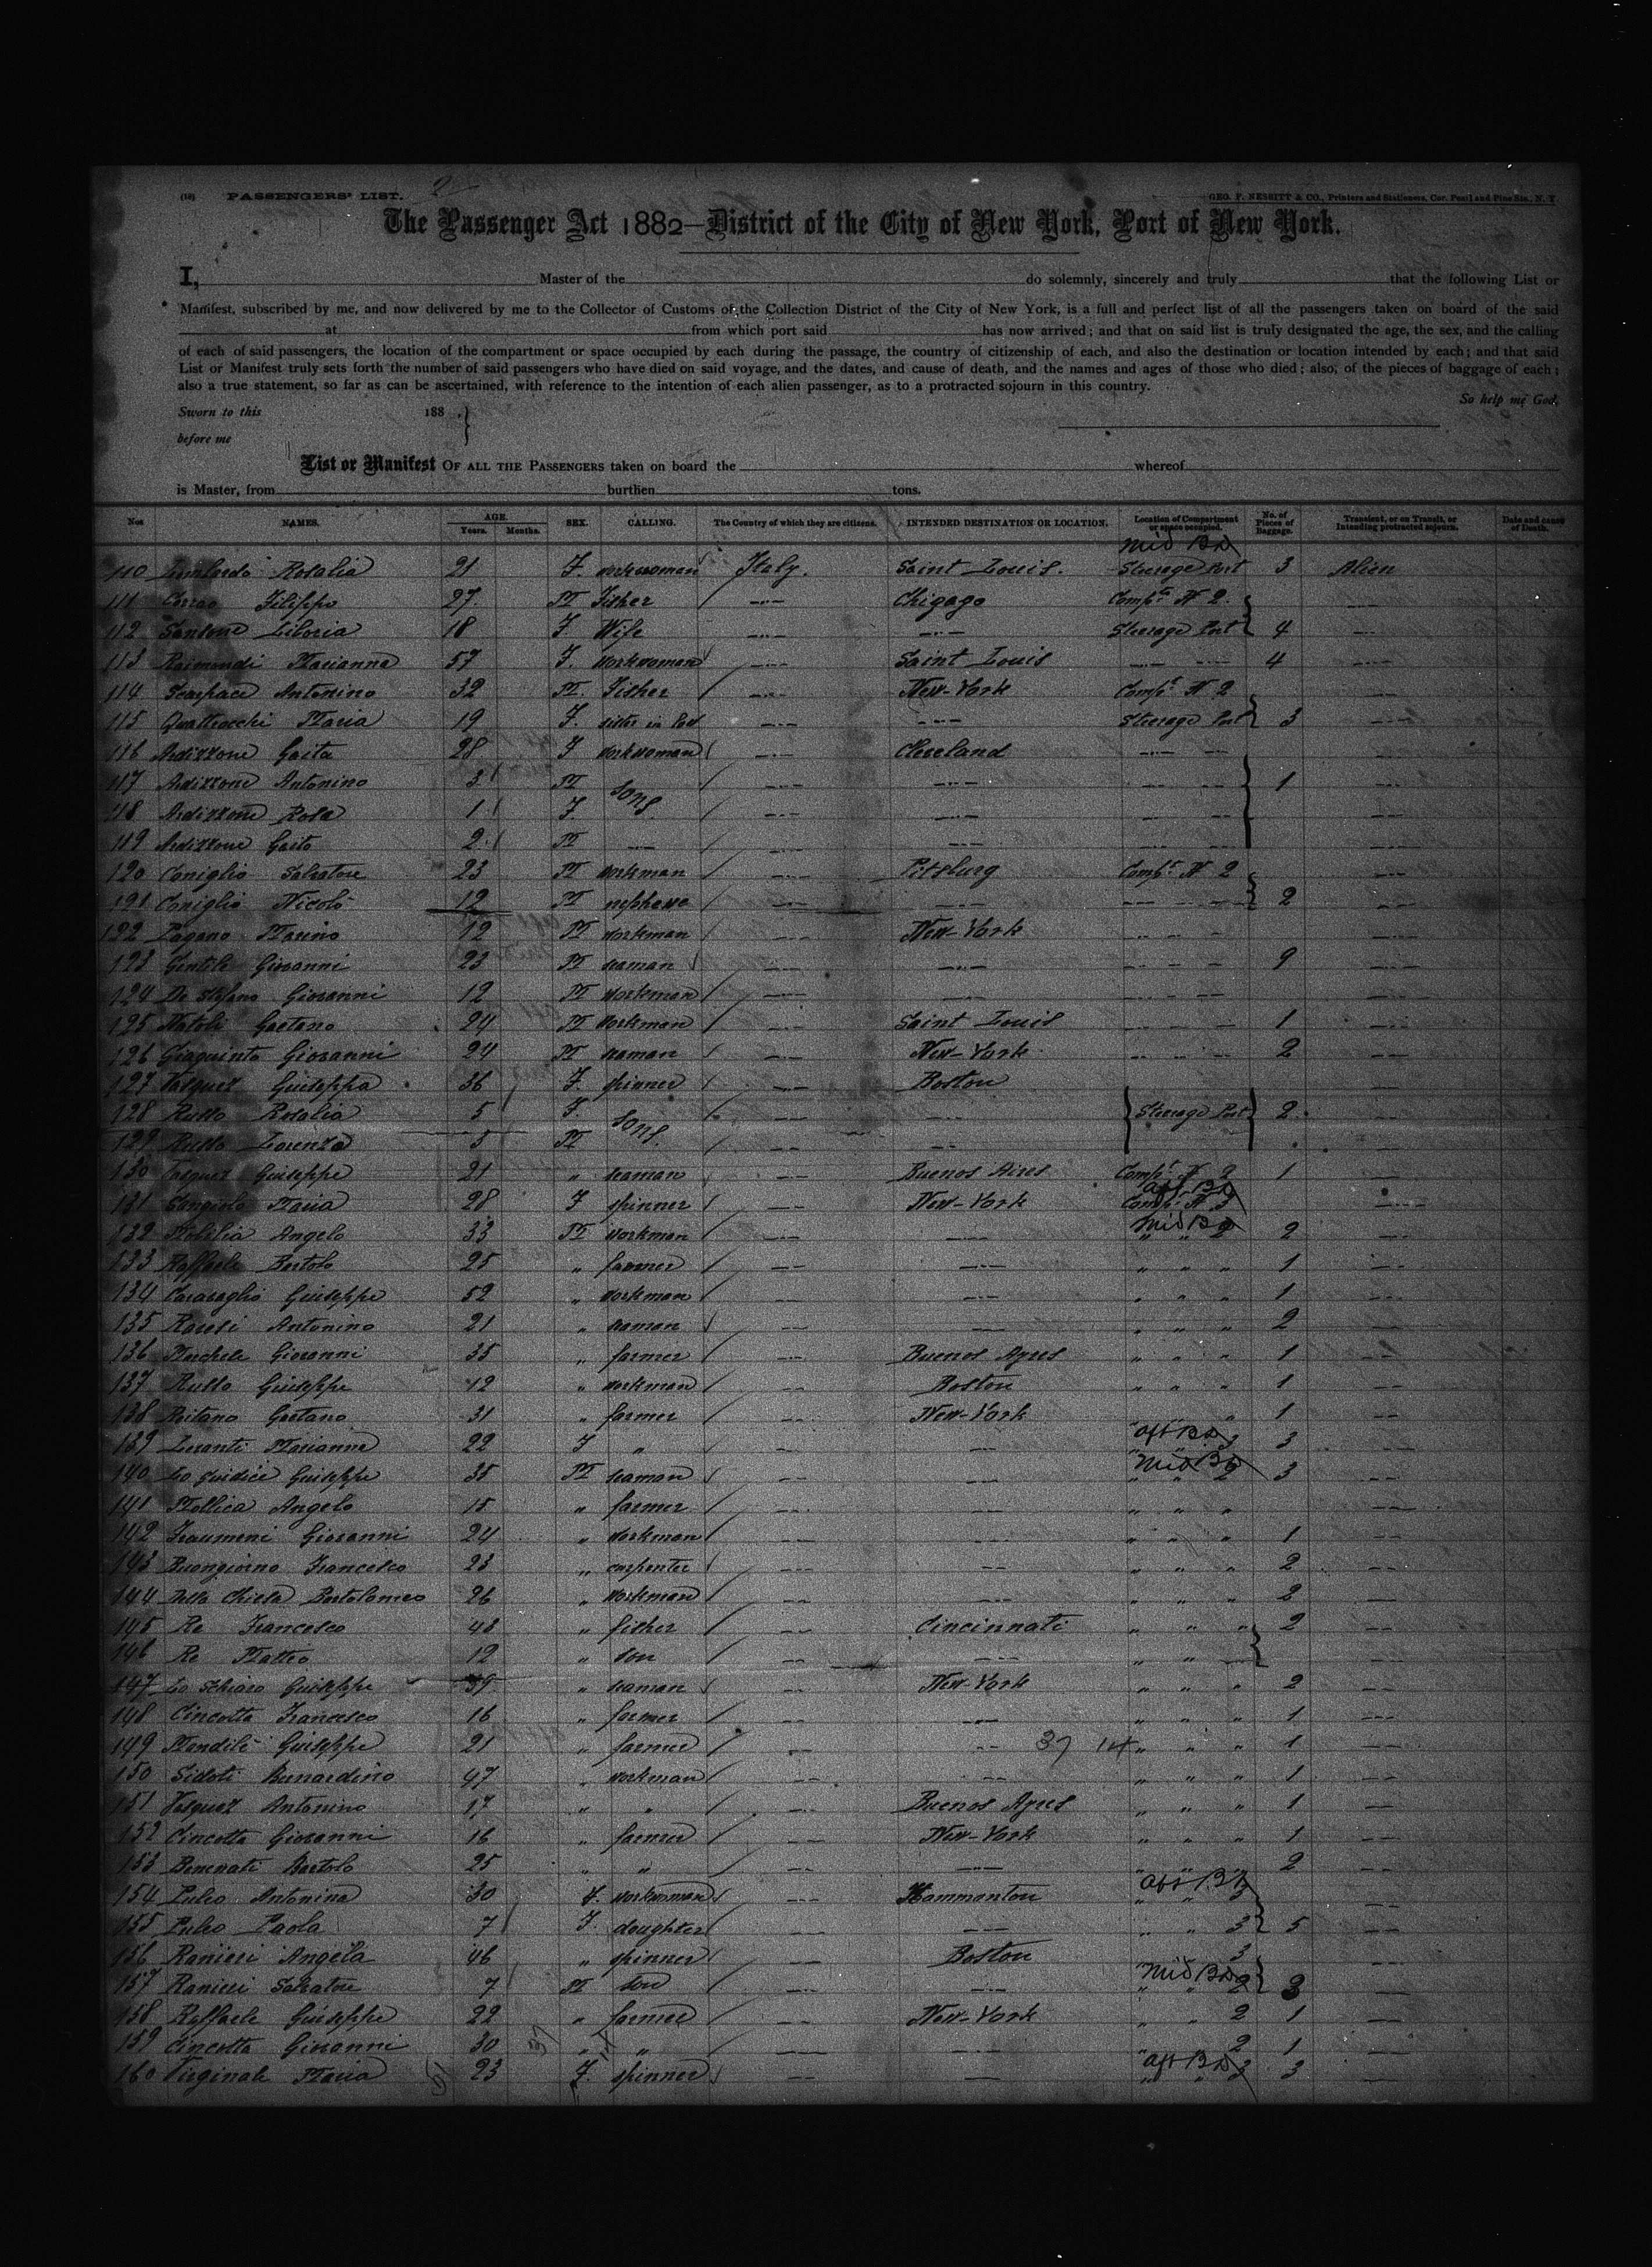 (16) PASSENGERS' LIST. 2 GEO. F. NESBITT & CO., Printers and Stationers, Cor. Pearl and Pine Sts., N. Y.
The Passenger Act 1882—District of the City of New York, Port of New York.
I, Master of the do solemnly, sincerely and truly that the following List or
Manifest, subscribed by me, and now delivered by me to the Collector of Customs of the Collection District of the City of New York, is a full and perfect list of all the passengers taken on board of the said
at from which port said has now arrived; and that on said list is truly designated the age, the sex, and the calling
of each of said passengers, the location of the compartment or space occupied by each during the passage, the country of citizenship of each, and also the destination or location intended by each; and that said
List or Manifest truly sets forth the number of said passengers who have died on said voyage, and the dates, and cause of death, and the names and ages of those who died; also, of the pieces of baggage of each;
also a true statement, so far as can be ascertained, with reference to the intention of each alien passenger, as to a protracted sojourn in this country.
So help me God.
Sworn to this 188 .
before me
List or Manifest OF ALL THE PASSENGERS taken on board the whereof
is Master, from burthen tons.
Nos NAMES. AGE. Years. Months. SEX. CALLING. The Country of which they are citizens. INTENDED DESTINATION OR LOCATION. Location of Compartment or space occupied. No. of Pieces of Baggage. Transient, or on Transit, or Intending protracted sojourn. Date and cause of Death.
Mid BD
110 Lombardo Rosalia 21 F. workwoman Italy. Saint Louis. Steerage Port 3 Alien
111 Corrao Filippo 27. M Fisher —"— Chigago Compt. N 2.
112 Sansone Liboria 18 F Wife —"— —"— Steerage Port 4 —"—
113 Raimondi Marianna 57 F. workwoman —"— Saint Louis —"— —"— 4 —"—
114 Scarpace Antonino 32 M. Fisher —"— New-York Compt. N 2
115 Quattrocchi Maria 19 F. sister in law —"— —"— Steerage Port 3 —"—
116 Ardizzone Gaita 28 F workwoman —"— Cleveland —"— —
117 Ardizzone Antonino 3 M sons —"— —"— —"— 1 —"—
118 Ardizzone Rosa 1 F. —"— —"— —"—
119 Ardizzone Gaito 2 M —"— —"— —"— —"—
120 Coniglio Salvatore 23 M workman —"— Pitsburg Compt. N 2 —"—
121 Coniglio Nicolò 12 M nephewe —"— —"— —"— 2 —"—
122 Pagano Marino 12 M workman —"— New-York —"— —"—
123 Gentile Giovanni 23 M seaman —"— —"— —"— 9 —"—
124 De Stefano Giovanni 12 M workman —"— —"— —"— —"—
125 Natoli Gaetano 24 M workman —"— Saint Louis —"— 1 —"—
126 Giaquinto Giovanni 24 M seaman —"— New-York —"— 2 —"—
127 Vasquez Giuseppa 36 F. spinner —"— Boston —"—
128 Russo Rosalia 5 F. sons —"— —"— Steerage Port 2
129 Russo Lorenzo 3 M —"— —"—
130 Vasquez Giuseppe 21 " seaman —"— Buenos Aires Compt. N 2 1 —"—
Aft BD
131 Cangiolo Maria 28 F spinner —"— New-York Compt. N 3 —"—
Mid BD
132 Nobilia Angelo 33 M workman —"— —"— " " 2 2 —"—
133 Raffaele Bartolo 25 " farmer —"— —"— " " " 1 —"—
134 Casavaglio Giuseppe 52 " workman —"— —"— " " " 1 —"—
135 Raresi Antonino 21 " seaman —"— —"— " " " 2 —"—
136 Marchese Giovanni 35 " farmer —"— Buenos Ayres " " " 1 —"—
137 Russo Giuseppe 12 " workman —"— Boston " " " 1 —"—
138 Reitano Gaetano 31 " farmer —"— New-York " 1 —"—
Aft BD
139 Zuranti Marianna 22 F " —"— —"— " " 3 3 —"—
Mid BD
140 Lo Giudice Giuseppe 35 M seaman —"— —"— " " 2 3 —"—
141 Mollica Angelo 15 " farmer —"— —"— " " " —"—
142 Fraumeni Giovanni 24 " workman —"— —"— " " " 1 —"—
143 Buongiorno Francesco 23 " carpenter —"— —"— " " " 2 —"—
144 Della Chiesa Bartolomeo 26 " workman —"— —"— " " " 2 —"—
145 Re Francesco 43 " fisher —"— Cincinnati " " " 2 —"—
146 Re Matteo 12 " son —"— —"— " " —"—
147 Lo Schiavo Giuseppe 39 " seaman —"— New-York " " " 2 —"—
148 Cincotta Francesco 16 " farmer —"— —"— " " " 1 —"—
149 Mandile Giuseppe 21 " farmer —"— —"— 37 14 " " " 1 —"—
150 Sidoti Bernardino 47 " workman —"— —"— " " " 1 —"—
151 Vasquez Antonino 17 " " —"— Buenos Ayres " " " 1 —"—
152 Cincotta Giovanni 16 " farmer —"— New-York " " " 1 —"—
153 Benenati Bartolo 25 " " —"— —"— " " " 2 —"—
Aft BD
154 Puleo Antonina 30 F. workwoman —"— Hammonton " " 3 —"—
155 Puleo Paola 7 F. daughter —"— —"— " " 3 5 —"—
156 Ranieri Angela 46 " spinner —"— Boston 3 —"—
Mid BD
157 Ranieri Salvatore 7 M son —"— —"— " " 2 3 —"—
158 Raffaele Giuseppe 22 " farmer —"— New-York " " 2 1 —"—
159 Cincotta Giovanni 30 37 " " —"— —"— " 2 1 —"—
Aft BD
160 Virginale Maria 23 F. spinner —"— —"— " " 3 3 —"—